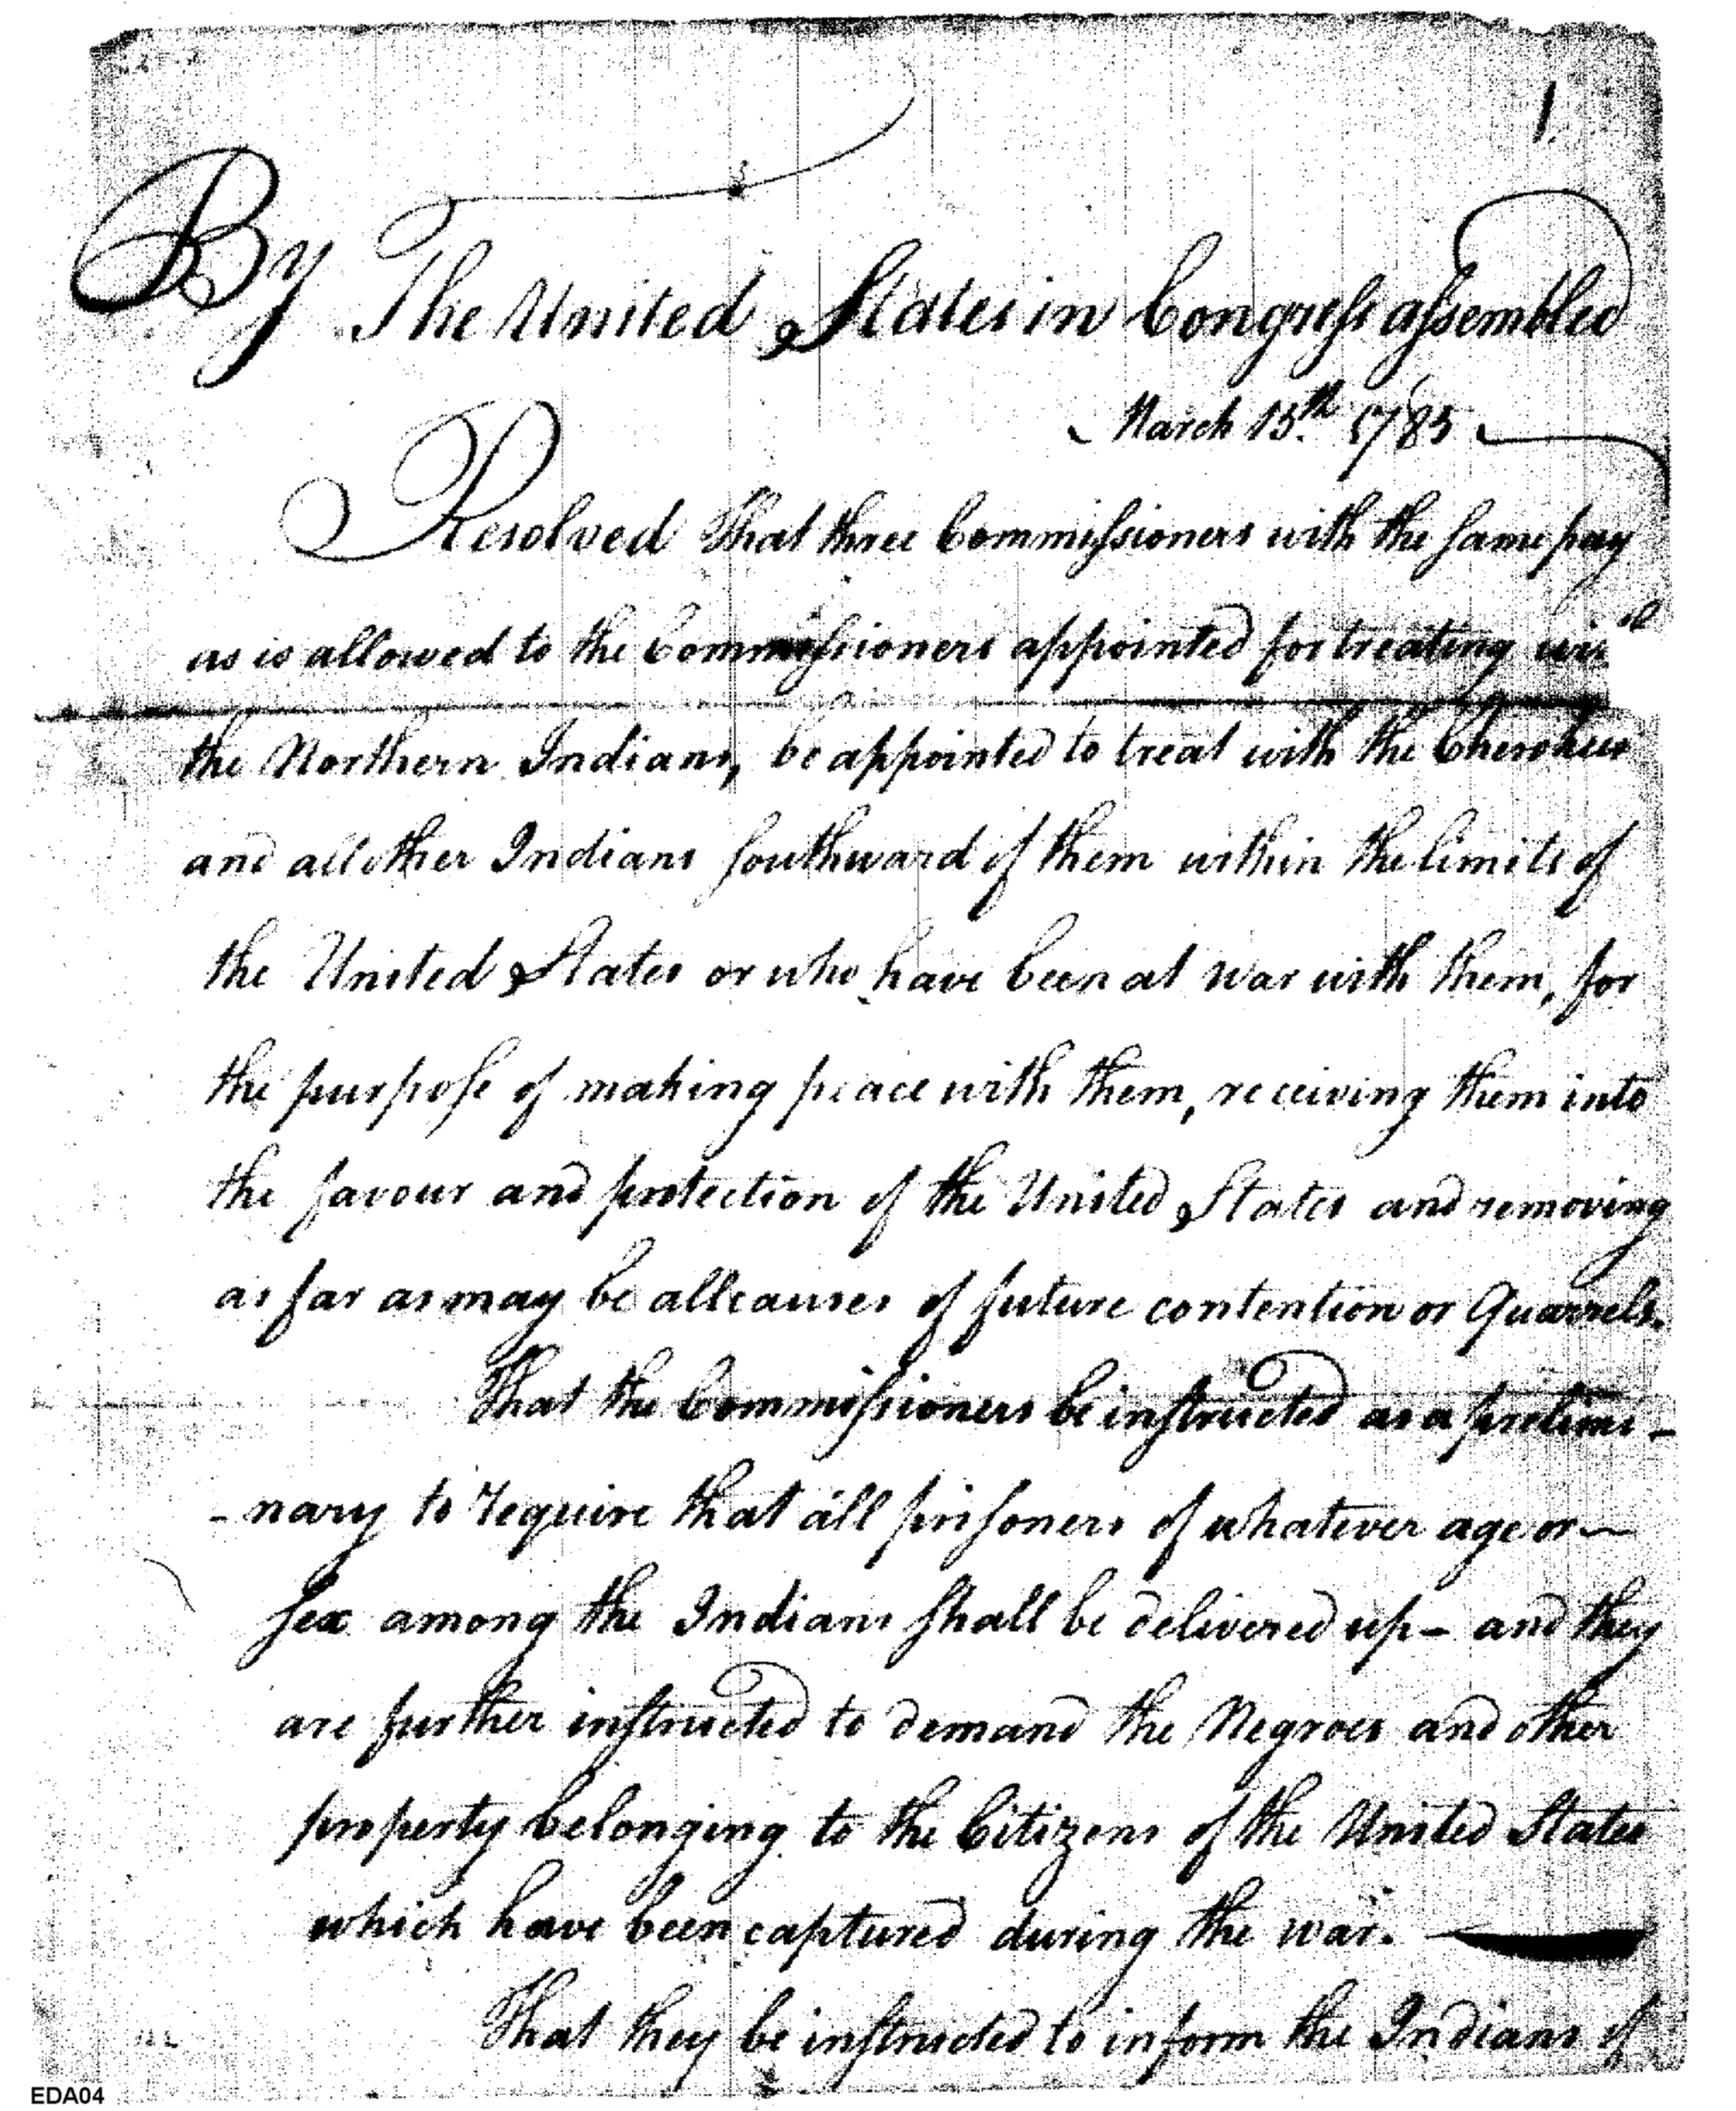 1.
By The United States in Congress assembled
March 15th 1785
Resolved That three Commissioners with the same pay
as is allowed to the Commissioners appointed for treating with
the Northern Indians, be appointed to treat with the Cherokees
and all other Indians southward of them within the limits of
the United States or who have been at war with them, for
the purpose of making peace with them, receiving them into
the favour and protection of the United States and removing
as far as may be all causes of future contention or Quarrels.
That the Commissioners be instructed as a prelimi-
-nary to require that all prisoners of whatever age or
sex among the Indians shall be delivered up - and they
are further instructed to demand the Negroes and other
property belonging to the Citizens of the United States
which have been captured during the war.
That they be instructed to inform the Indians of
EDA04